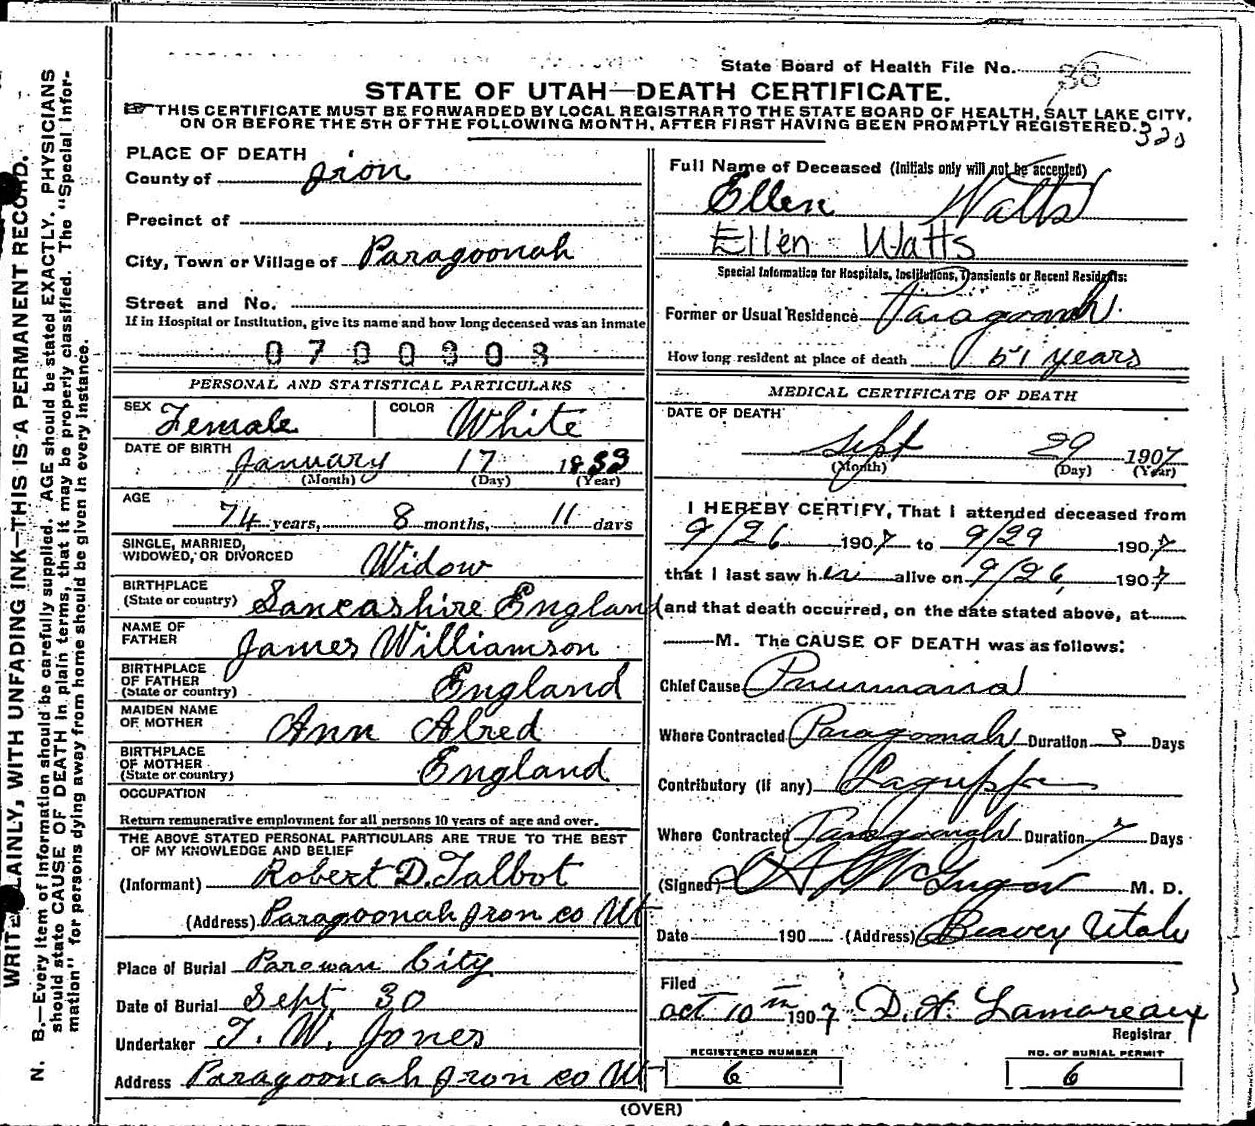 State Board of Health File No. 38
STATE OF UTAH—DEATH CERTIFICATE.
THIS CERTIFICATE MUST BE FORWARDED BY LOCAL REGISTRAR TO THE STATE BOARD OF HEALTH, SALT LAKE CITY,
ON OR BEFORE THE 5TH OF THE FOLLOWING MONTH, AFTER FIRST HAVING BEEN PROMPTLY REGISTERED. 320
WRITE PLAINLY, WITH UNFADING INK—THIS IS A PERMANENT RECORD.
N. B.—Every item of information should be carefully supplied. AGE should be stated EXACTLY. PHYSICIANS
should state CAUSE OF DEATH in plain terms, that it may be properly classified. The "Special Infor-
mation" for persons dying away from home should be given in every instance.
PLACE OF DEATH
County of Iron
Precinct of
City, Town or Village of Paragoonah
Street and No.
If in Hospital or Institution, give its name and how long deceased was an inmate
0700303
PERSONAL AND STATISTICAL PARTICULARS
SEX Female COLOR White
DATE OF BIRTH January 17 1833
(Month) (Day) (Year)
AGE
74 years, 8 months, 11 days
SINGLE, MARRIED,
WIDOWED, OR DIVORCED Widow
BIRTHPLACE
(State or country) Lancashire England
NAME OF
FATHER James Williamson
BIRTHPLACE
OF FATHER
(State or country) England
MAIDEN NAME
OF MOTHER Ann Alred
BIRTHPLACE
OF MOTHER
(State or country) England
OCCUPATION
Return remunerative employment for all persons 10 years of age and over.
THE ABOVE STATED PERSONAL PARTICULARS ARE TRUE TO THE BEST
OF MY KNOWLEDGE AND BELIEF
(Informant) Robert D. Talbot
(Address) Paragoonah Iron co Ut
Place of Burial Parowan City
Date of Burial Sept. 30
Undertaker T. W. Jones
Address Paragoonah Iron co Ut
Full Name of Deceased (Initials only will not be accepted)
Ellen Watts
Ellen Watts
Special Information for Hospitals, Institutions, Transients or Recent Residents:
Former or Usual Residence Paragoonah
How long resident at place of death 51 years
MEDICAL CERTIFICATE OF DEATH
DATE OF DEATH
Sept 29 1907
(Month) (Day) (Year)
I HEREBY CERTIFY, That I attended deceased from
9/26 1907 to 9/29 1907
that I last saw her alive on 9/26, 1907
and that death occurred, on the date stated above, at
M. The CAUSE OF DEATH was as follows:
Chief Cause Pnumania
Where Contracted Paragoonah Duration 3 Days
Contributory (if any) Lagrippe
Where Contracted Paragoonah Duration 7 Days
(Signed) M. D.
Date 190 (Address) Beaver Utah
Filed
Oct 10th 1907 D. A. Lamoreaux
Registrar
REGISTERED NUMBER
6
NO. OF BURIAL PERMIT
6
(OVER)